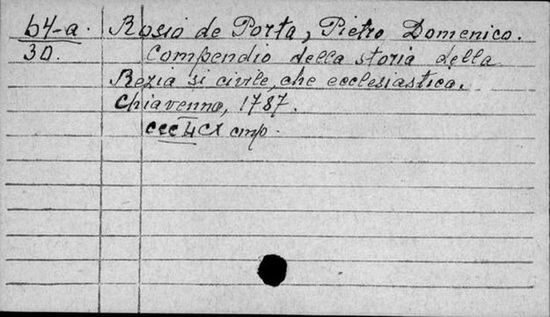 64-a. Rosio de Porta, Pietro Domenico.
30. Compendio della storia della
Rezia sì civile, che ecclesiastica.
Chiavenna, 1787.
cmp.